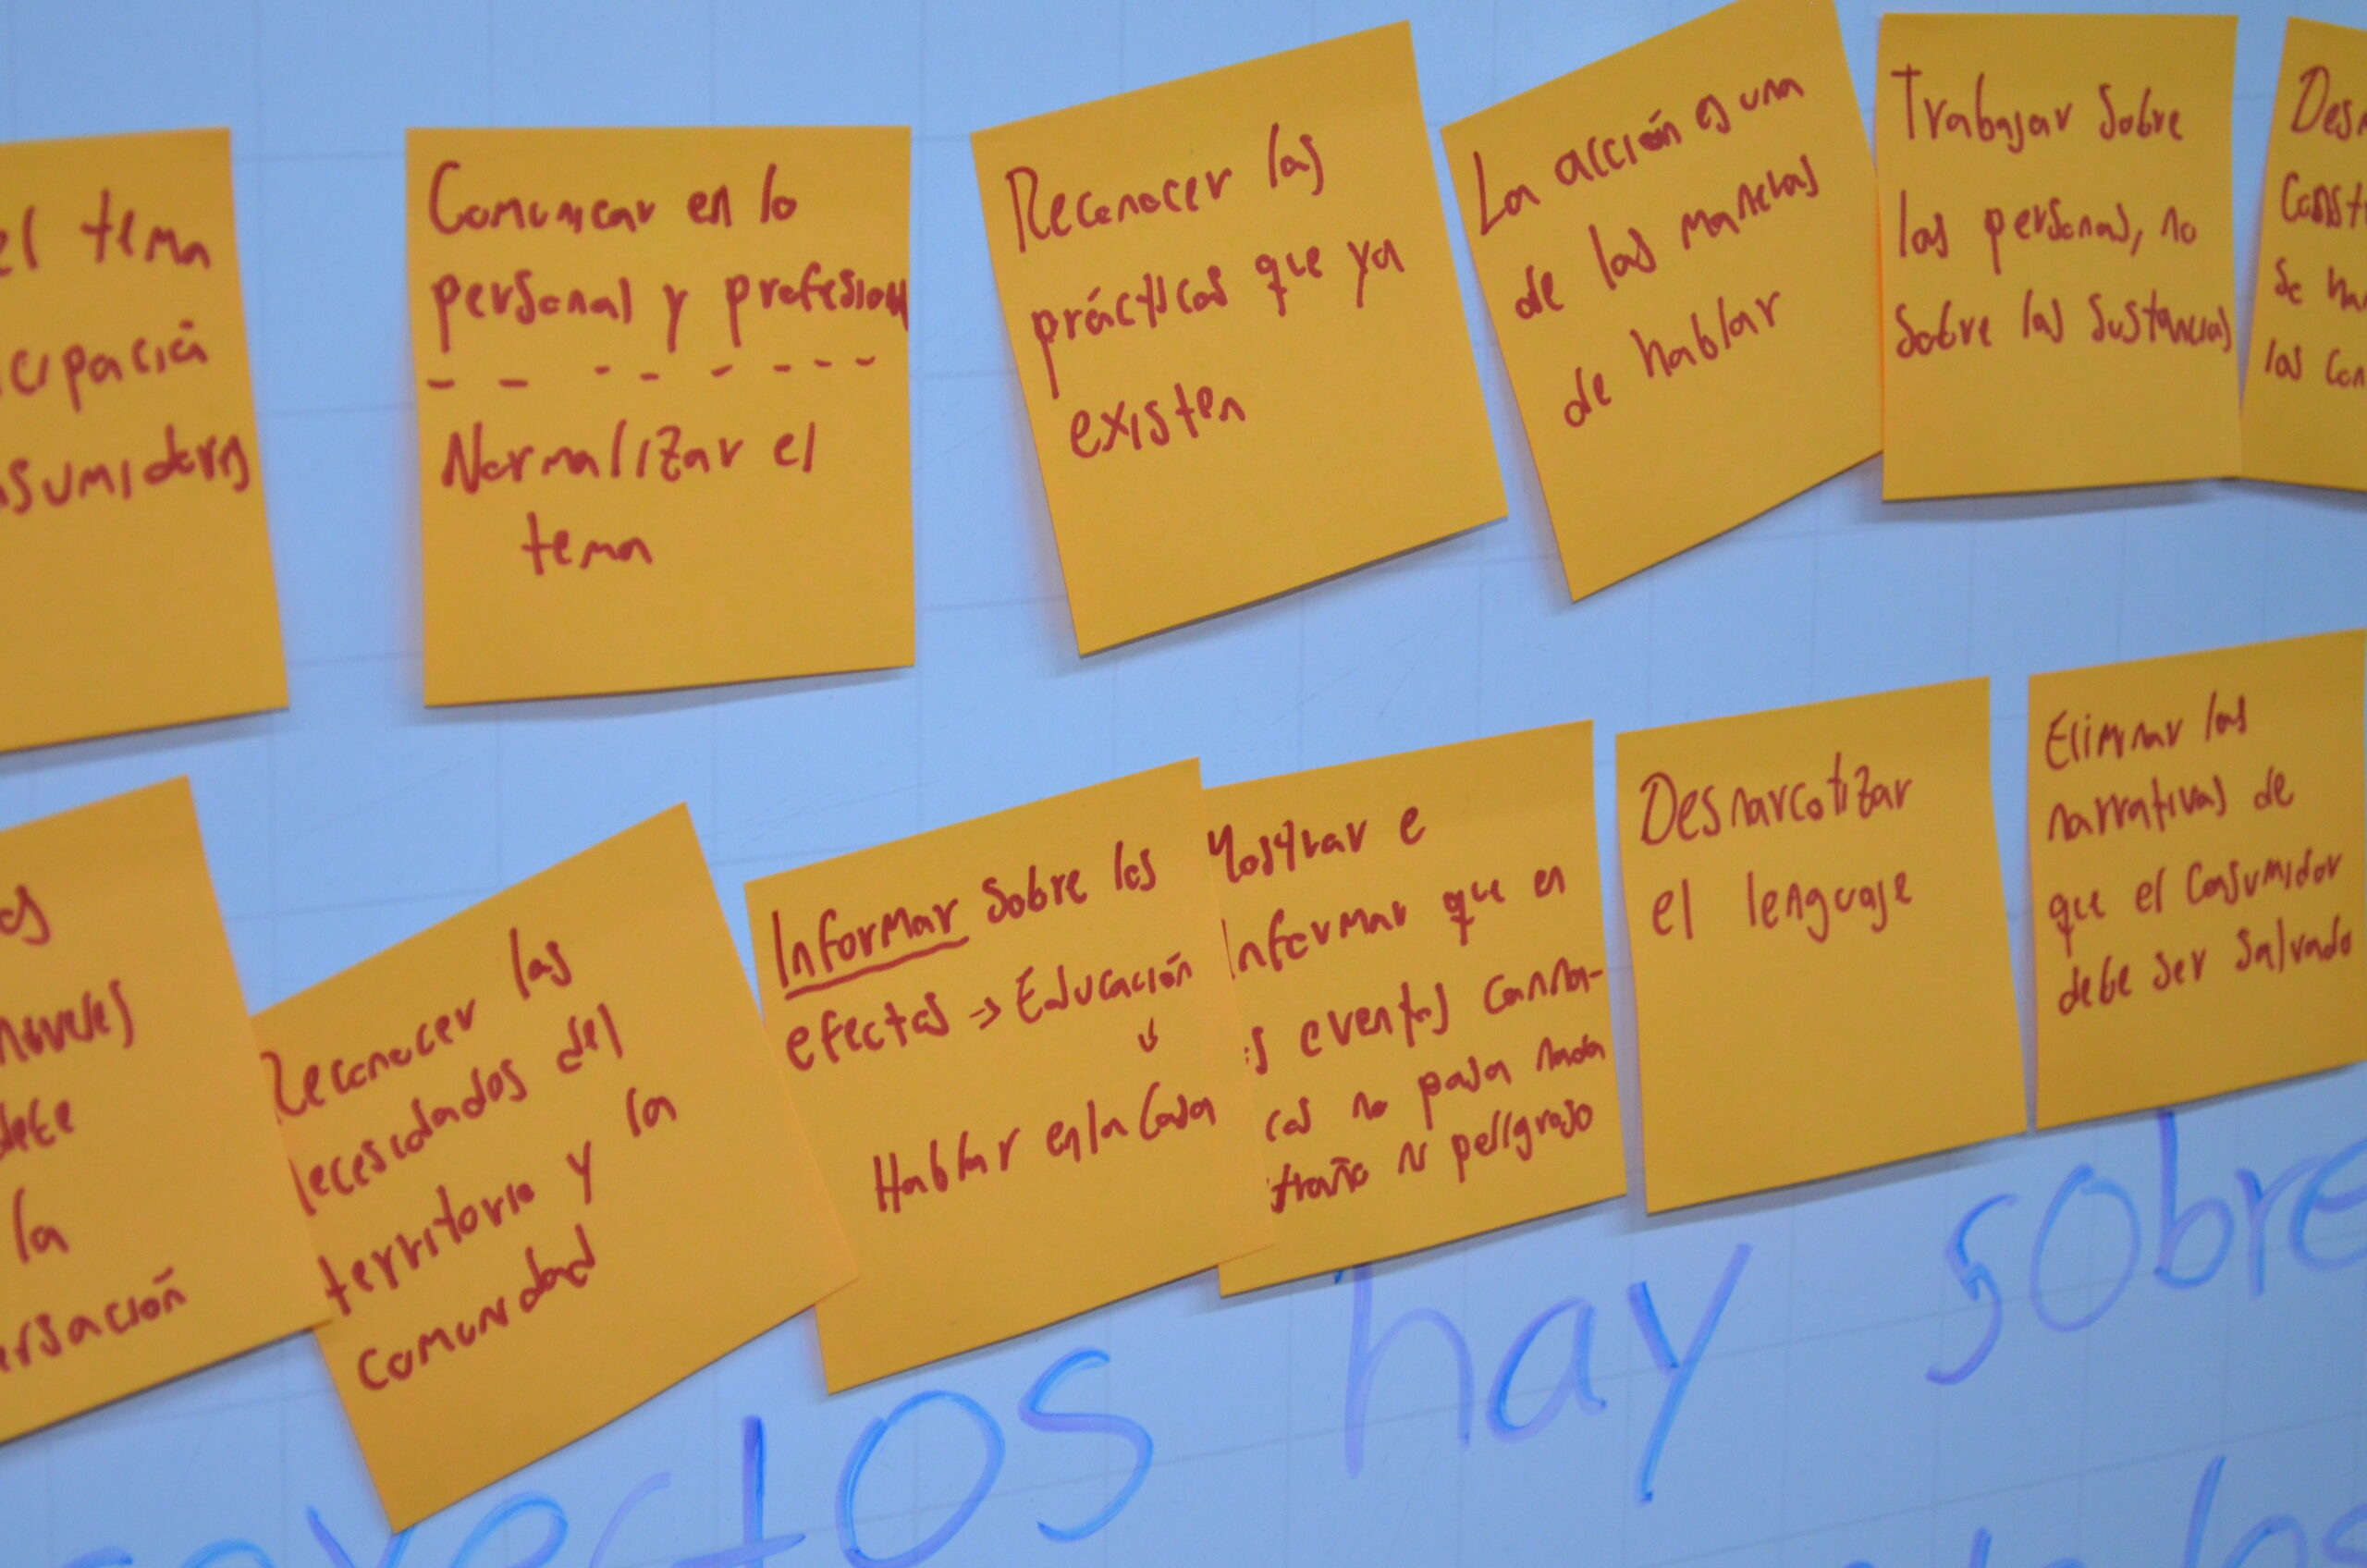 el tema
cipación
sumidores
Comunicar en lo
personal y profesion
Normalizar el
tema
Reconocer las
prácticas que ya
existen
La acción es una
de las maneras
de hablar
Trabajar sobre
las personas, no
sobre las sustancias
Des
Const
se ha
los con
es
niveles
la
ersación
Reconocer las
necesidades del
territorio y la
comunidad
Informar sobre los
efectos → Educación
↓
Hablar en la casa
Mostrar e
informar que en
s eventos canna-
cos no pasa nada
traño ni peligroso
Desnarcotizar
el lenguaje
Eliminar las
narrativas de
que el consumidor
debe ser salvado
oyectos hay sobre
los